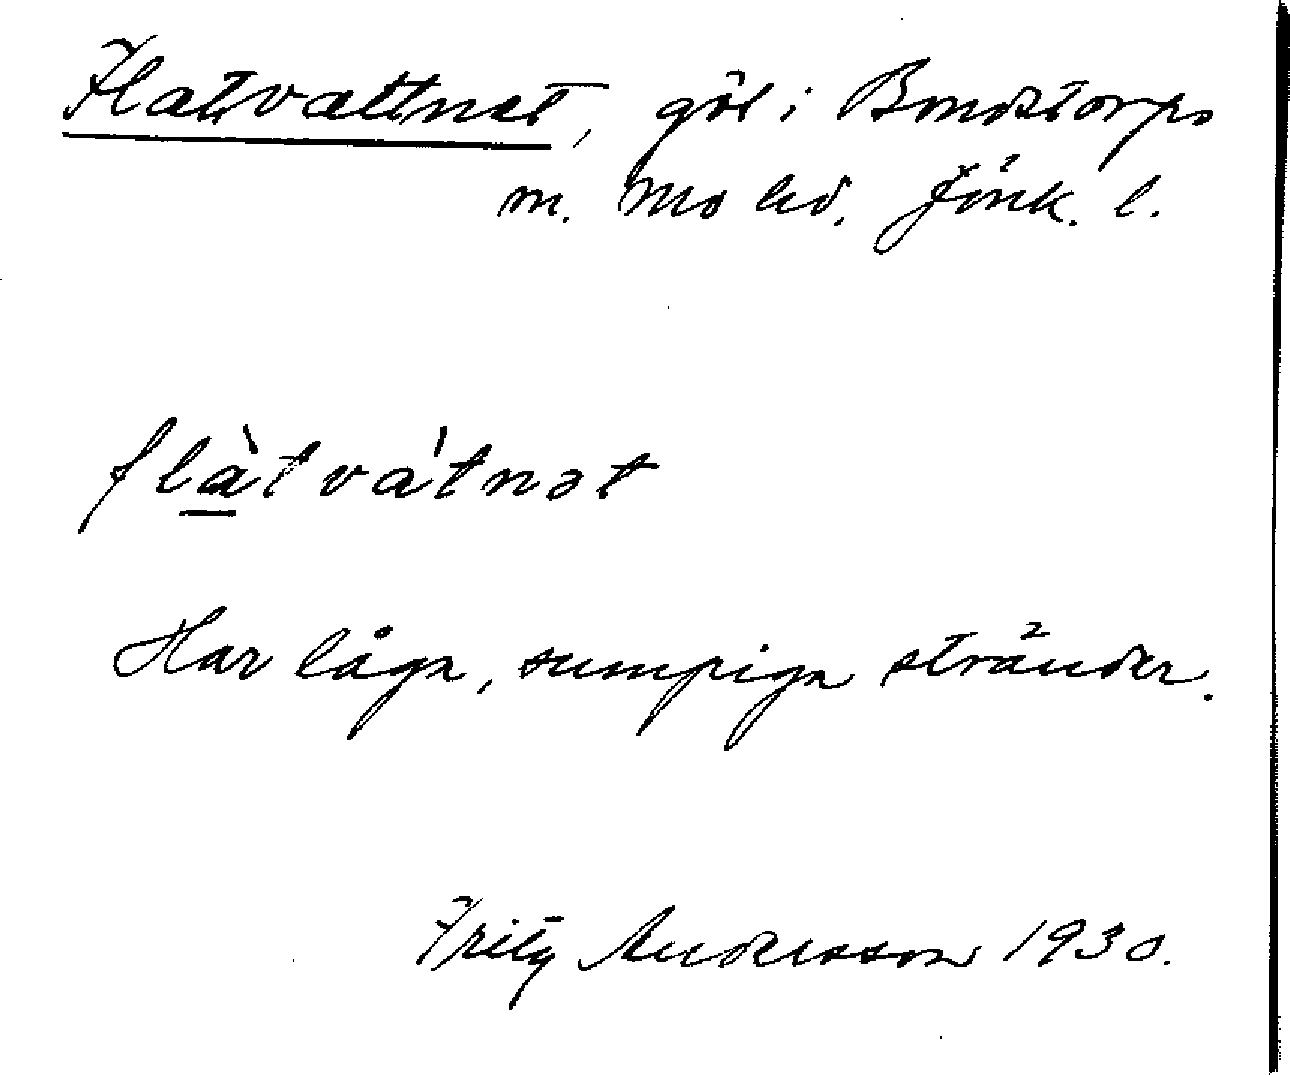 Flatvattnet, göl i Bondstorps
m. Mo hd. Jönk. l.
flàtvátnət
Har låga, sumpiga stränder.
Fritz Andersson 1930.